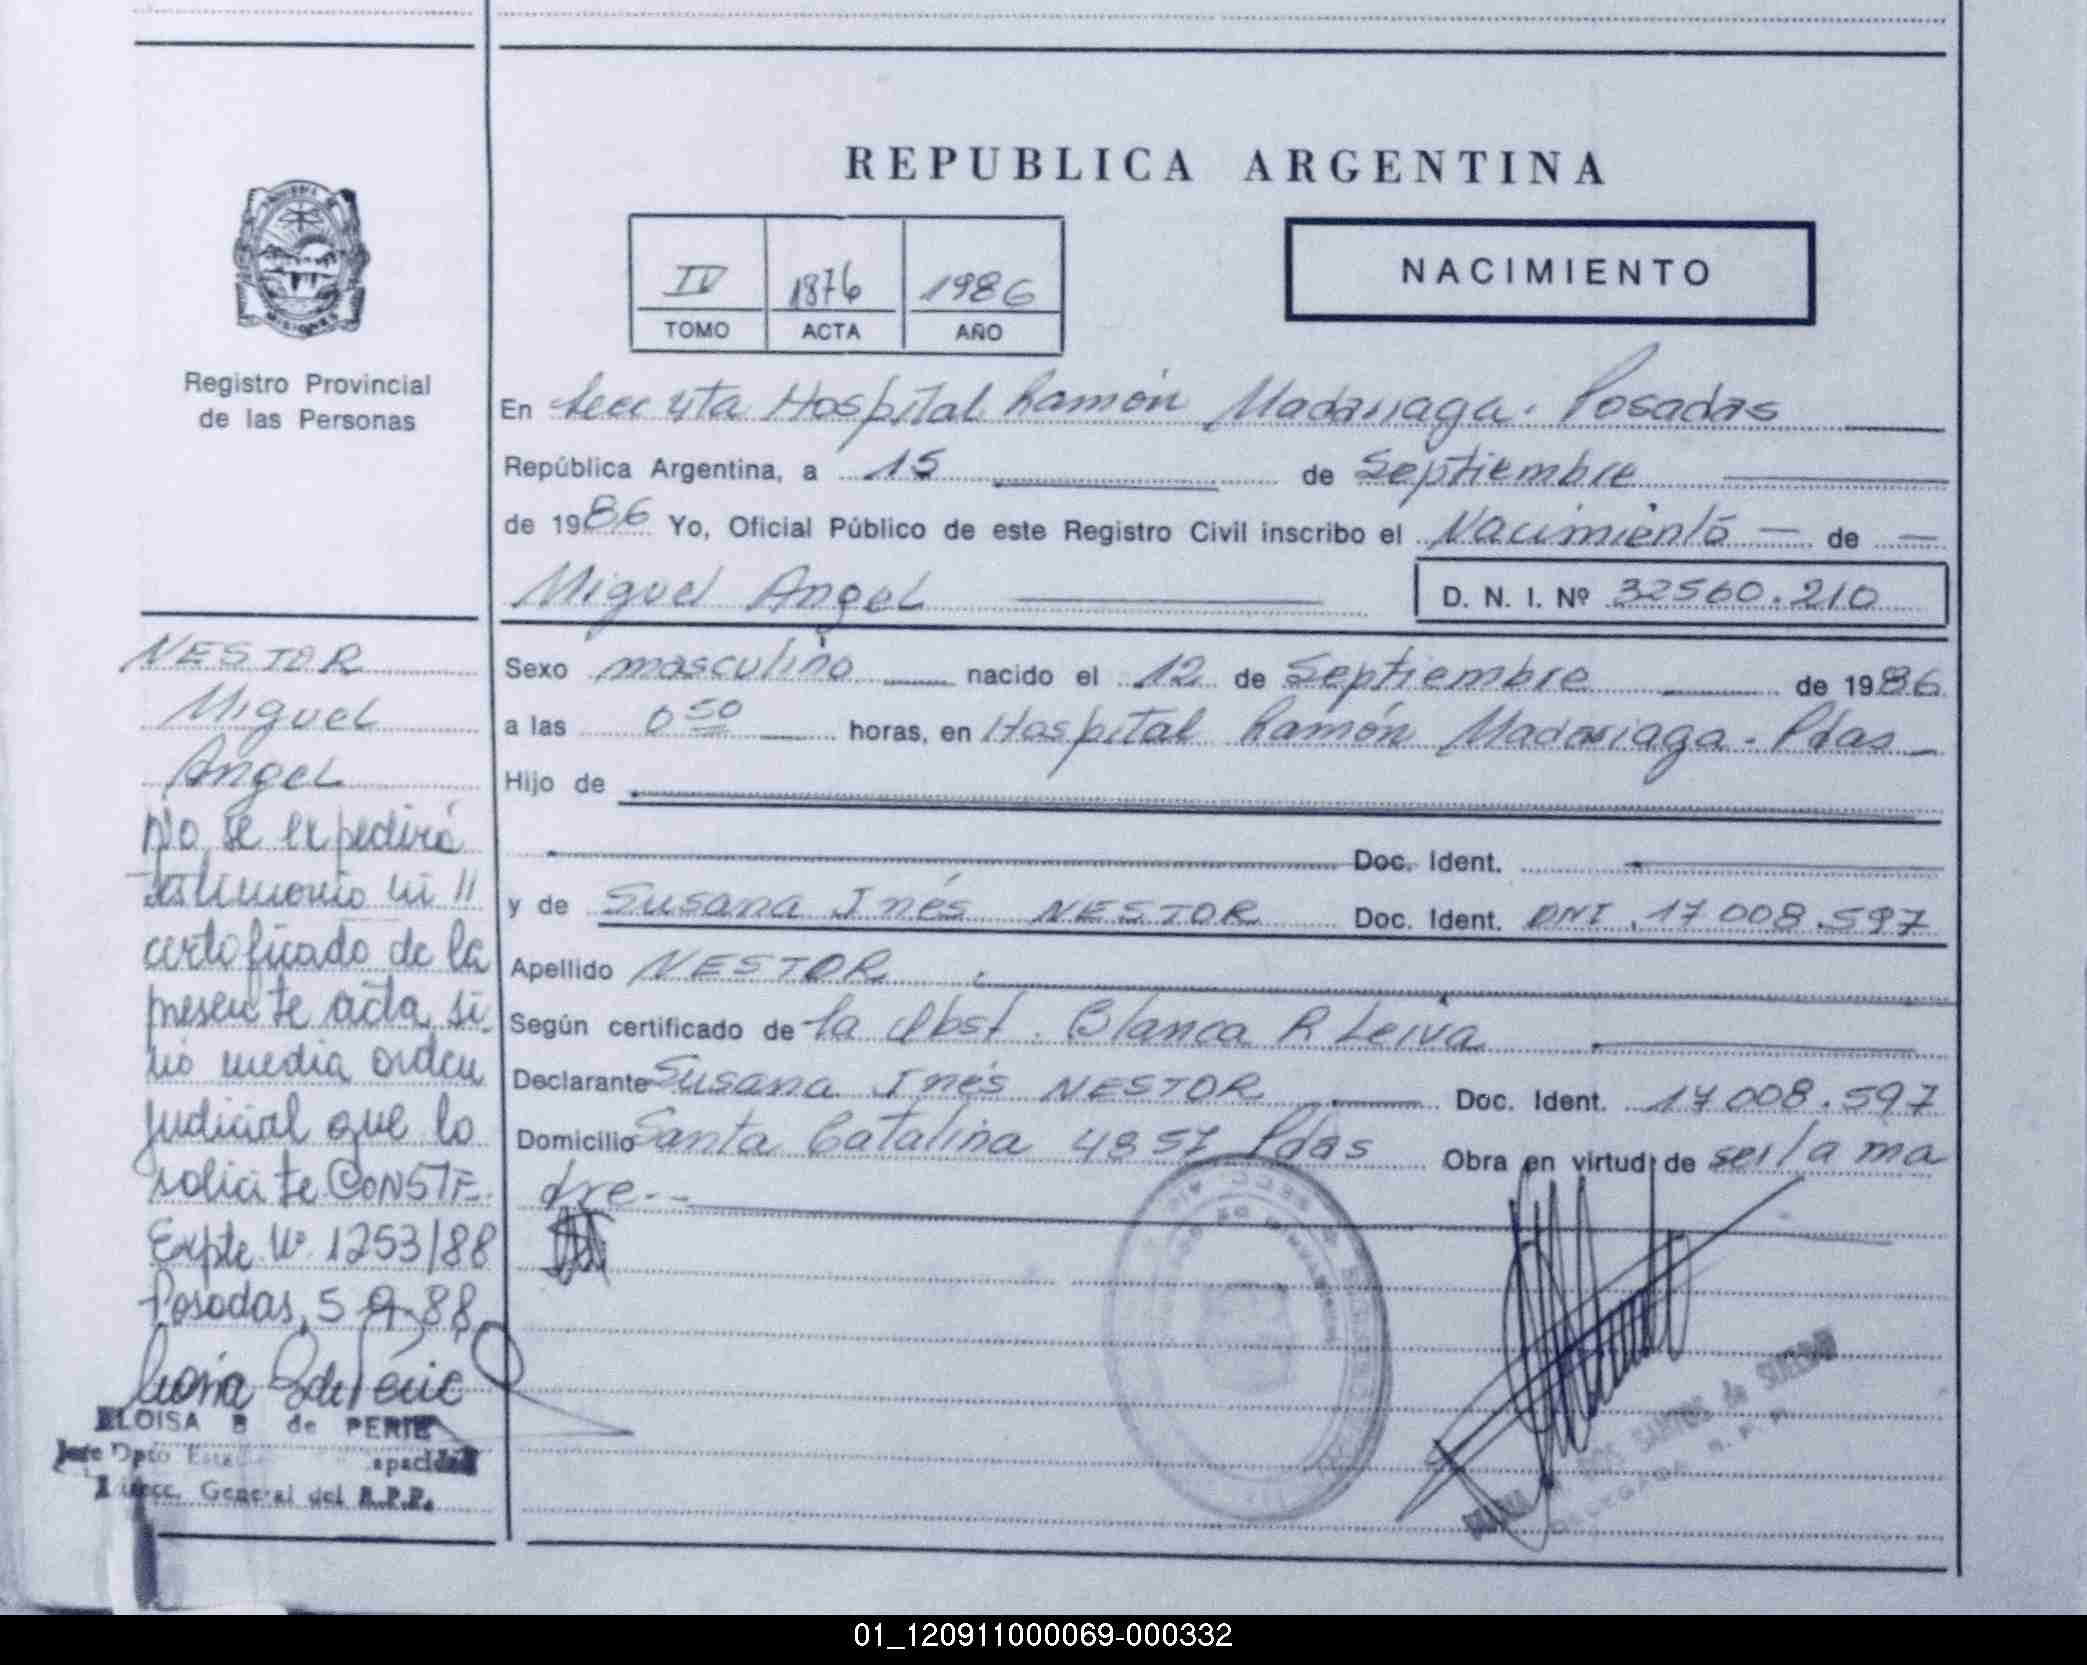 REPUBLICA ARGENTINA
IV 1876 1986
TOMO ACTA AÑO
NACIMIENTO
MISIONES
Registro Provincial
de las Personas
En Secc 4ta Hospital Ramón Madariaga. Posadas
República Argentina, a 15 de Septiembre
de 1986 Yo, Oficial Público de este Registro Civil inscribo el Nacimiento de
Miguel Angel
D. N. I. Nº 32560.210
Sexo masculino nacido el 12 de Septiembre de 1986
a las 0 50 horas, en Hospital Ramón Madariaga. Pdas
Hijo de
Doc. Ident.
y de Susana Inés NESTOR Doc. Ident. DNI. 17008.597
Apellido NESTOR
Según certificado de la Obst. Blanca R Leiva
Declarante Susana Inés NESTOR Doc. Ident. 17008.597
Domicilio Santa Catalina 4857 Pdas Obra en virtud de ser la ma
dre--
NESTOR
Miguel
Angel
No se expedirá
testimonio ni
certificado de la
presente acta si
no media orden
judicial que lo
solicite CONSTE.
Expte. Nº 1253/88
Posadas, 5-9-88
ELOISA B de PERIE
Jefe Dpto
Direcc. General del R.P.P.
SANTOS de
DELEGADA R. P. P.
01_120911000069-000332